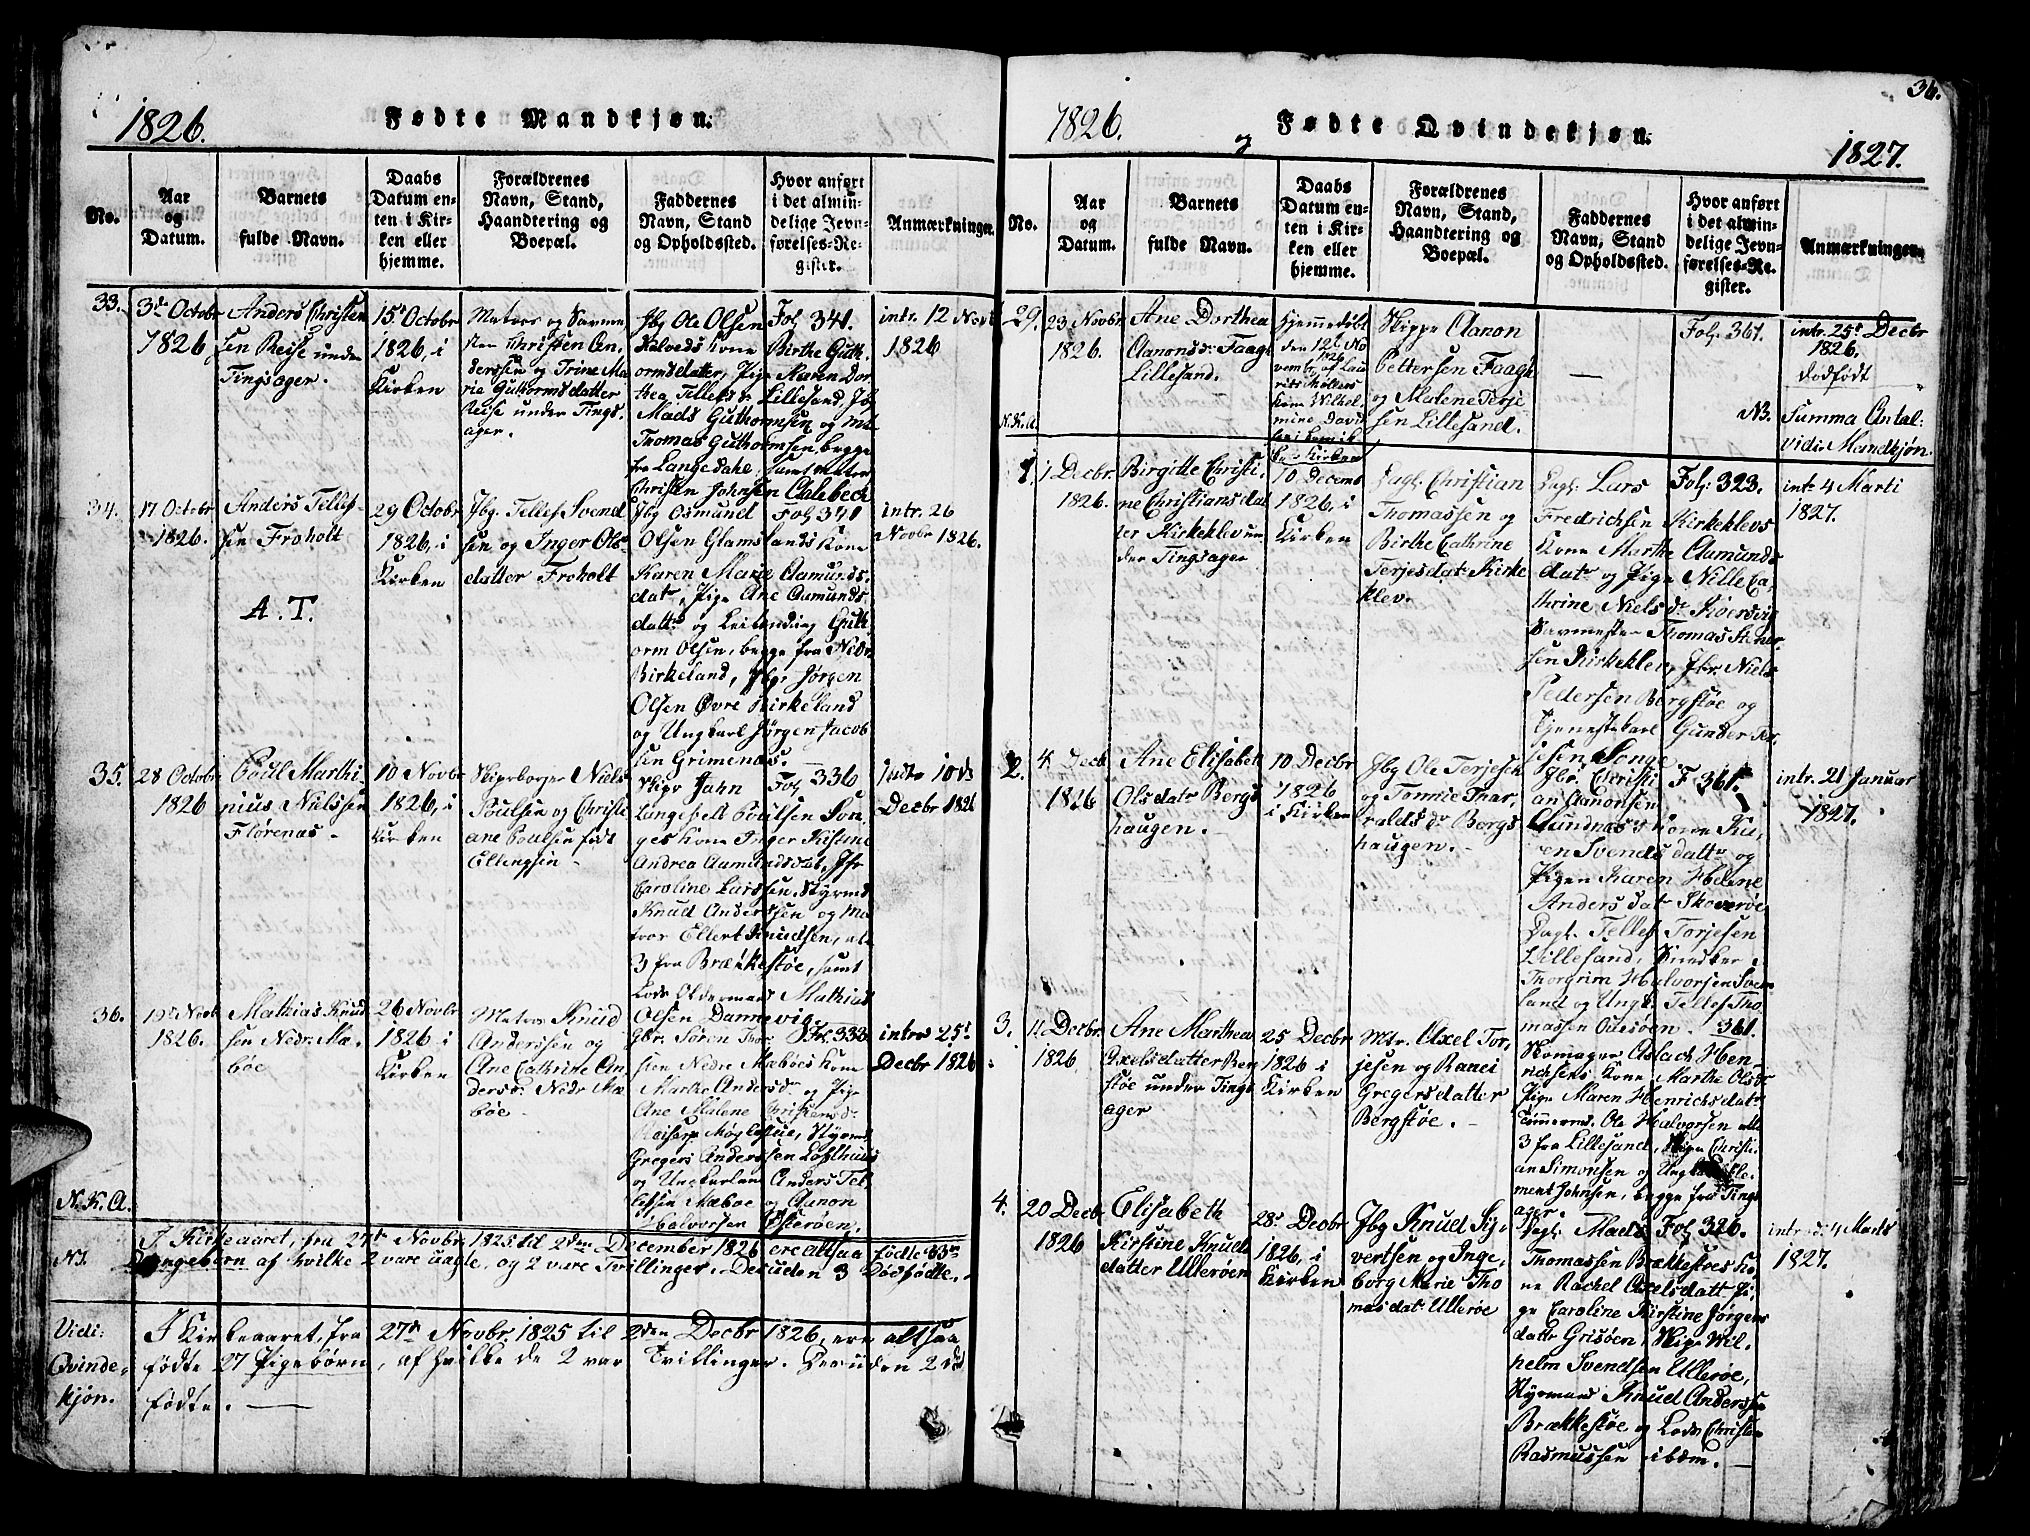 36.
1826.
Fødte Mandkjøn.
No.
Aar
og
Datum.
Barnets
fulde Navn.
Daabs
Datum en-
ten i Kir-
ken eller
hjemme.
Forældrenes
Navn, Stand,
Haandtering og
Boepæl.
Faddernes
Navn, Stand
og Opholdssted.
Hvor anført
i det almin-
delige Jevn-
førelses-Re-
gister.
Anmærkninger
33.
3de Octobr
1826
Anders Christen
sen Reise under
Tingsager.
15de Octobr
1826, i
Kirken
Christen An
derssen og Trine Ma
ria Guttormsdatter
Reise under Tings
ager.
Jbg Ole Olsen
Kalveds Kone Birthe Guth
ormsdatter, Pige Maren Dor
thea Tellefsdr Lillesand Jbg
Mads Guthormsen og
Thomas Guthormsen, begge
fra Langedahl, samt
Christen Johnsen Aalebech
Fol 341.
intr. 12 Novbr
1826
34.
17 Octobr
1826.
Anders Tellef
sen Froholt
A. T.
29 Octobr
1826, i
Kirken
Jbg. Tellef Svend
sen og Inger Ols
datter Froholt
Jbg Osmund
Olsen Glamslands Kone
Karen Marie Aamunds
datr, Pige Ane Aamunds
dattr og Guth
orm Olsen, begge fra Nedr
Birkeland, Jbg. Jørgen
Olsen Øvre Birkeland
og Ungkarl Jørgen Jacob
sen Grimenæs.
Fol 341
intr. 26
Novbr 1826.
35.
28 Octobr
1826
Poul Marthi
nius Nielssen
Florenæs
10 Novbr
1826, i
Kirken
Niels
Poulsen og Christi
ane Poulsen født
Ellingsen
Skipr Jahn
Langefelt Poulsen Son
ges Kone Inger Kistine
Andrea Aamundsdat, Jfr
Caroline Larssen, Styrmd
Knud Anderssen og Ma
tros Ellert Knudsen, alle
3 fra Brækkestøe, samt
Lods Oldermand Mathias
Olsen Dannevig.
Fol 336
Decbr 1826
36.
19de Novbr
1826.
Mathias Knud
sen Nedr. Mæ
bøe
26 Novbr
1826 i
Kirken
Matros Knud
Anderssen og
Ane Cathrine An
dersdr Nedr Mæ
bøe
Gbr. Søren
sen Nedre Mæbøes Kone
Marthe Andersdr og Pige
Ane Malene Christensdr
Møglestue, Styrmd
Gregers Anderssen
og Ungkarlen Anders Tel
lefsen Mæbøe og Aanon
Halvorsen Østerøen.
Fol. 333
intro 25de
Decbr 1826
N. K. A.
NB.
I Kirkeaaret, fra 27de Novbr 1825 til 2den December 1826 ere altsaa fødte 33
Drengebørn af hvilke 2 vare uægte, og 2 vare Tvillinger. Desuden 3 Dødfødte.
Vidi:
Qvinde-
kjøn.
I Kirkeaaret, fra 27de Novbr. 1825 til 2den Decbr 1826, ere altsaa
fødte 27 Pigebørn, af hvilke de 2 var Tvillinger. Desuden 2 død
fødte.
1826.
og
Fødte Qvindekjøn.
1827.
No.
Aar
og
Datum.
Barnets
fulde Navn.
Daabs
Datum en-
ten i Kir-
ken eller
hjemme.
Forældrenes
Navn, Stand,
Haandtering og
Boepæl.
Faddernes
Navn, Stand
og Opholdssted.
Hvor anført
i det almin-
delige Jevn-
førelses-Re-
gister.
Anmærkninger.
29.
23 Novbr
1826.
Ane Dorthea
Aanonsdr Faage
Lillesand.
Hjemmedøbt
den 12 No
vembr 1826 af Lau
rits Møllers
Kone Wilhel
mine David
Kirken
Skippr Aanon
Pettersen Faage
og Malene Terje
sen Lillesand.
Fol. 361.
intr. 25de Decbr
1826.
Dødfødt
N. K. A.
NB.
Summa Antal
vidi: Mandkjøn.
1.
1 Decbr
1826.
Birgitte Christi
ne Christiansdat
ter Kirkeklev un
der Tingsager
10 Decemb
1826, i
Kirken
Dagl. Christian
Thomassen og
Birthe Cathrine
Terjesdatr Kirke
klev.
Dagl. Lars
Fredrichsen Kirkeklevs
Kone Marthe Aamunds
datr og Pige Nille Ca
thrine Nielsdr
Thomas Stener
sen Kirkeklev Jbr. Niels
Pedersen Bergstøe og
Tjenestekarl Gunder Ter
jesen Songe
Fol. 323.
intr 4 Marti
1827.
2.
4 Decb
1826
Ane Elisabet
Olsdatr Bergs
haugen.
10 Decbr
1826
i Kirken
Jbg Ole Terjesen
og Tonnie Thar
raldsdr Bergs
haugen.
Gbr. Christi
an Aanonsen
Aundnæs's Kone Ka
en Svendsdattr og
Pigen Karen Helene
Andersdatr Skoverøe
Dagl. Tellef Torjesen
Lillesand, Snedker
Thorgrim Halvorsen
land og Ungk. Tellef Tho
massen Odesøen.
F. 361.
intr. 21 Januar
1827.
3.
11 Decbr.
1826
Ane Marthea
Axelsdatter Ber
støe under Tings
ager
25 Decbr
1826 i
Kirken
Mtr. Axel Tor
jesen og Ranei
Gregersdatter
Bergstøe.
361.
Skomager Aslach Hen
richsens Kone Marthe Olsdr
Pige Maren Henrichsdatr
Tømmermd. Ole Halvorsen alle
3 fra Lillesand, Skipr Christi
an Simonsen og Ungkarl Kle
ment Johnsen, begge fra Tings
ager.
4.
20 Decbr
1826
Elisabeth
Kirstine Knuds
datter Ulleröen
28de Decbr
1826, i
Kirken
Jbg Knud Sig
vertsen og Inge
borg Marie Tho
masdatr Ulleröe
Dagl. Mads
Thomassen Brækkestøes Ko
ne Rachel Axelsdatt Pi
ge Caroline Kirstine Jørgens
dattr Grisøen, Skipr Wil
helm Svendsen Ulleröe,
Styrmand Knud Anderssen
Brækkestøe og Lods Christen
Rasmussen ibdm.
Fol. 326.
intr d. 4 Marts
1827.